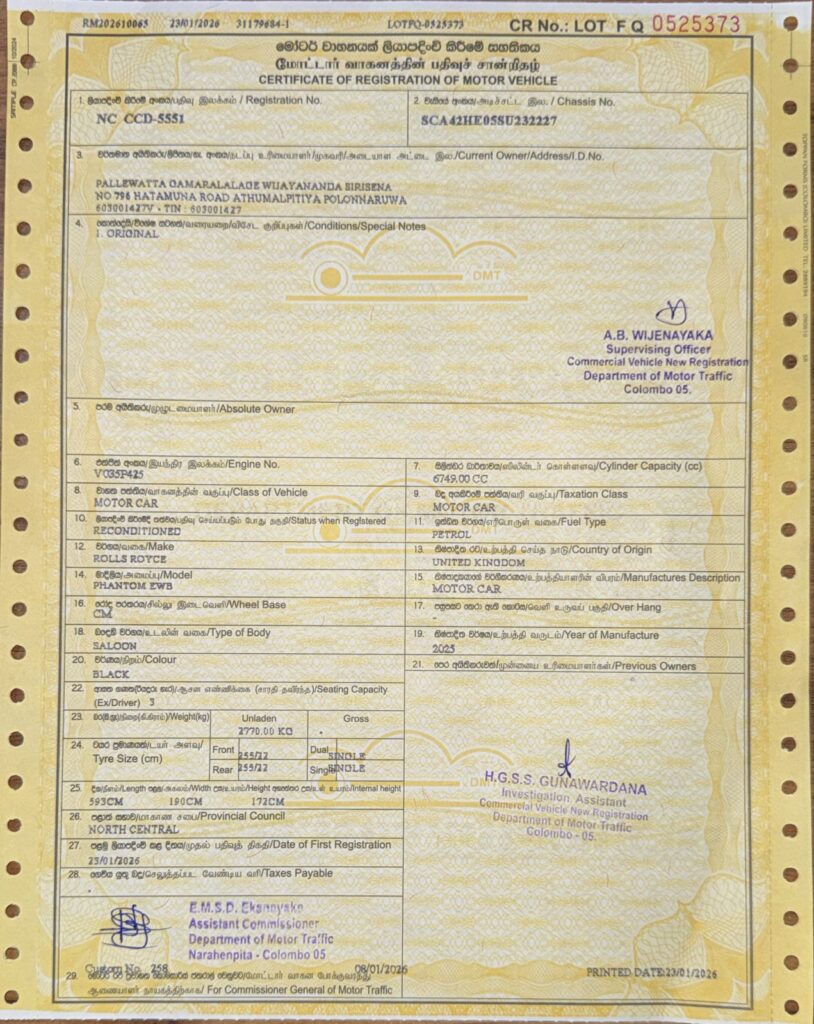 RM202610065 23/01/2026 31179684-1 LOTFQ-0525373 CR No.: LOT F Q 0525373
මෝටර් වාහනයක් ලියාපදිංචි කිරීමේ සහතිකය
மோட்டார் வாகனத்தின் பதிவுச் சான்றிதழ்
CERTIFICATE OF REGISTRATION OF MOTOR VEHICLE
1. ලියාපදිංචි කිරීමේ අංකය/பதிவு இலக்கம் / Registration No.
NC CCD-5551
2. චැසියේ අංකය/அடிச்சட்ட இல. / Chassis No.
SCA42HE05SU232227
3. /Current Owner/Address/I.D.No.
PALLEWATTA GAMARALALAGE WIJAYANANDA SIRISENA
NO 796 HATAMUNA ROAD ATHUMALPITIYA POLONNARUWA
603001427V - TIN : 603001427
4. /Conditions/Special Notes
1. ORIGINAL
DMT
A.B. WIJENAYAKA
Supervising Officer
Commercial Vehicle New Registration
Department of Motor Traffic
Colombo 05.
5. පරම අයිතිකරු/முழுடமையாளர்/Absolute Owner
6. එන්ජින් අංකය/இயந்திர இலக்கம்/Engine No.
V035P425
7. /Cylinder Capacity (cc)
6749.00 CC
8. වාහන පන්තිය/வாகனத்தின் வகுப்பு/Class of Vehicle
MOTOR CAR
9. /வரி வகுப்பு/Taxation Class
MOTOR CAR
10. /Status when Registered
RECONDITIONED
11. ඉන්ධන වර්ගය/எரிபொருள் வகை/Fuel Type
PETROL
12. /வகை/Make
ROLLS ROYCE
13. /உற்பத்தி செய்த நாடு/Country of Origin
UNITED KINGDOM
14. /அமைப்பு/Model
PHANTOM EWB
15. /உற்பத்தியாளரின் விபரம்/Manufactures Description
MOTOR CAR
16. /சில்லு இடைவெளி/Wheel Base
CM
17. /Over Hang
18. /உடலின் வகை/Type of Body
SALOON
19. /உற்பத்தி வருடம்/Year of Manufacture
2025
20. වර්ණය/நிறம்/Colour
BLACK
21. /முன்னைய உரிமையாளர்கள்/Previous Owners
22. /ஆசன எண்ணிக்கை (சாரதி தவிர்ந்த)/Seating Capacity
(Ex/Driver) 3
23. /Weight(kg) Unladen Gross
2770.00 KG
24. /டயர் அளவு/
Tyre Size (cm)
Front 255/22 Dual SINGLE
Rear 255/22 Single SINGLE
25. දිග/நீளம்/Length පළල/அகலம்/Width උස/உயரம்/Height /Internal height
593CM 190CM 172CM
26. පළාත් සභාව/மாகாண சபை/Provincial Council
NORTH CENTRAL
27. /முதல் பதிவுத் திகதி/Date of First Registration
23/01/2026
28. /செலுத்தப்பட வேண்டிய வரி/Taxes Payable
H.G.S.S. GUNAWARDANA
Investigation Assistant
Commercial Vehicle New Registration
Department of Motor Traffic
Colombo - 05.
E.M.S.D. Ekanayake
Assistant Commissioner
Department of Motor Traffic
Narahenpita - Colombo 05
Custom No 258 08/01/2026
PRINTED DATE:23/01/2026
29. /மோட்டார் வாகன போக்குவரத்து
ஆணையாளர் நாயகத்திற்காக/ For Commissioner General of Motor Traffic